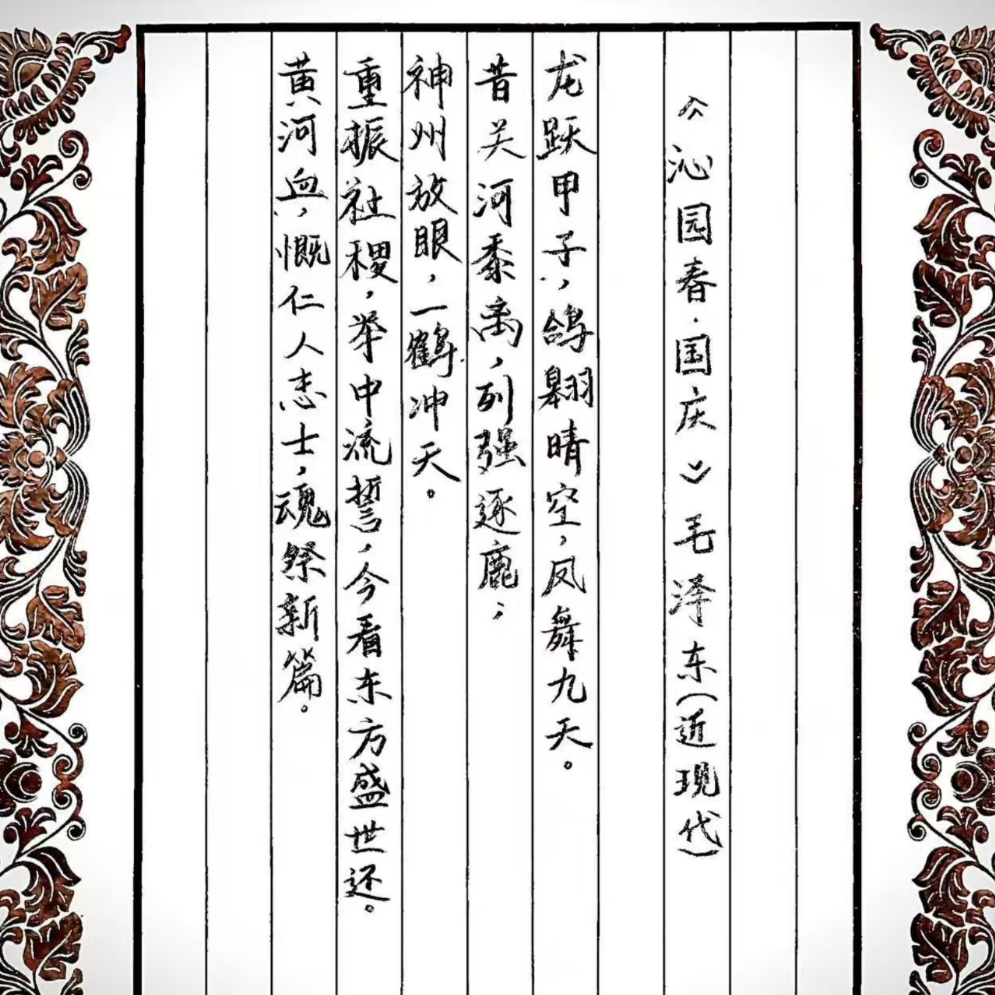 《沁园春·国庆》毛泽东(近现代)
龙跃甲子,鸽翱晴空,凤舞九天。
昔关河黍离,列强逐鹿;
神州放眼,一鹤冲天。
重振社稷,举中流誓,今看东方盛世还。
黄河血,慨仁人志士,魂祭新篇。